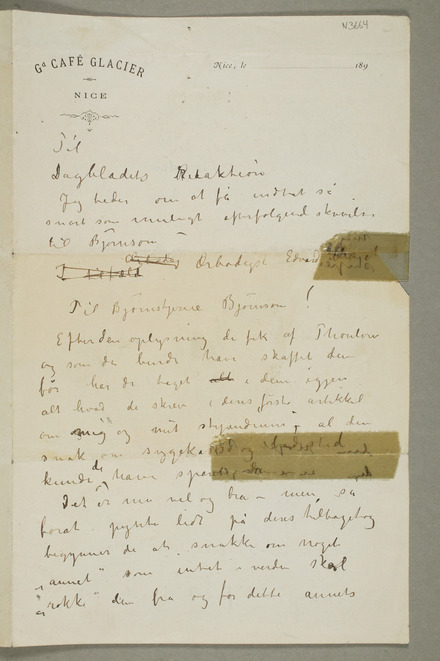 N3664
Gd CAFÉ GLACIER
NICE
Nice, le 189
Til
Dagbladets Redaktion
Jeg beder om at få indtat så
snart som muligt efterfølgend skrivelse
til Bjørnson
Ærbødigst Edvard
Til Bjørnstjerne Bjørnson!
Efter den oplysning de fik af Thaulow
og som de burde have skaffet dem
før har de taget i dem igjen
alt hvad de skrev i deres første artikkel
om mig og mit stipendium; al den
snak om sygekasse og
kunde de have sparet
Det er nu vel og bra – men så
forat pynte lidt på deres tilbagetog
begynner de at snakke om noget
"annet" som intet i verden skal
"rokke" dem fra og for dette annets